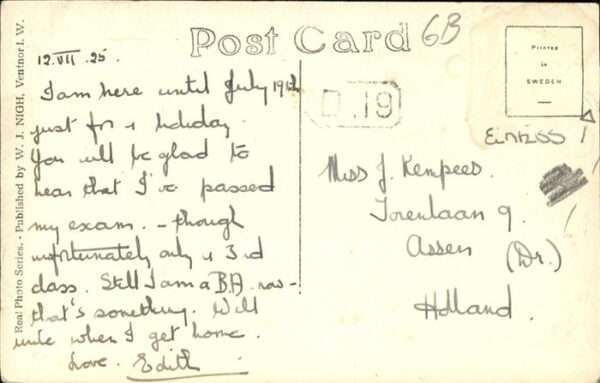 Post Card
6B
12.VII.25.
I am here until July 19th
just for a holiday.
You will be glad to
hear that I've passed
my exam. - though
unfortunately only a 3rd
class. Still I am a B.A. now -
that's something. Will
write when I get home.
Love. Edith
D.19
PRINTED
IN
SWEDEN
Miss J. Kempees.
Torenlaan 9.
Assen (Dr.)
Holland.
Real Photo Series. - Published by W. J. NIGH, Ventnor I. W.